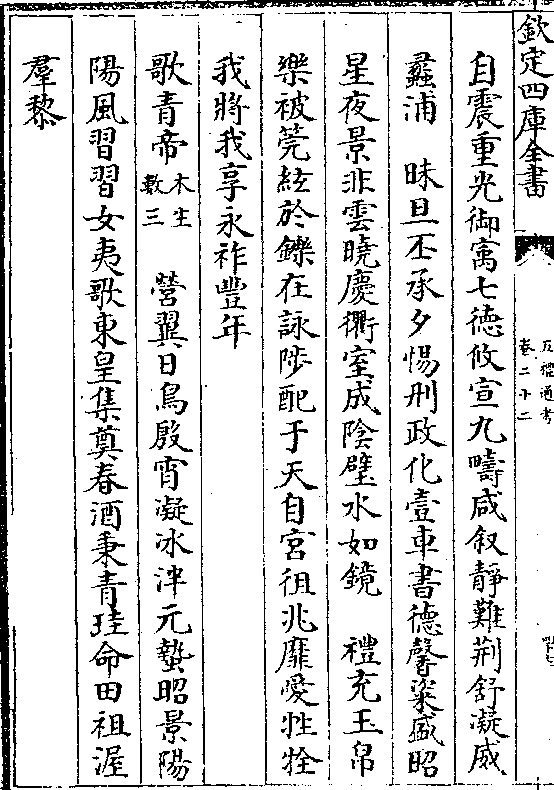 欽定四庫全書
五禮通考
卷二十二
自震重光御㝢七德攸宣九疇咸叙靜難荆舒凝威
蠡浦　昧旦丕承夕惕刑政化壹車書德馨粢盛昭
星夜景非雲曉慶衢室成陰璧水如鏡　禮充玉帛
樂被筦絃於鑠在詠陟配于天自宮徂兆靡愛牲牷
我將我享永祚豐年
歌青帝木生數三　營翼日烏殷宵凝冰泮元蟄昭景陽
陽風習習女夷歌東皇集奠春酒秉青珪命田祖渥
羣黎